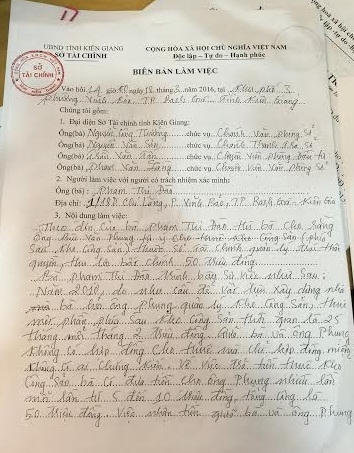 UBND TỈNH KIÊN GIANG
SỞ TÀI CHÍNH
CỘNG HÒA XÃ HỘI CHỦ NGHĨA VIỆT NAM
Độc lập – Tự do – Hạnh phúc
SỞ
TÀI CHÍNH
BIÊN BẢN LÀM VIỆC
Vào hồi 14 giờ ngày 18 tháng 3 năm 2016, tại Khu phố 3
phường Vĩnh Bảo, TP Rạch Giá, tỉnh Kiên Giang
Chúng tôi gồm:
1. Đại diện Sở Tài chính tỉnh Kiên Giang:
Ông(bà) Nguyễn Công chức vụ Chánh Văn phòng Sở
Ông(bà) Nguyễn Văn chức vụ Chánh Thanh tra Sở
Ông(bà) Trần Văn chức vụ Chuyên viên phòng
Ông(bà) Phan Văn chức vụ Chuyên viên Văn phòng Sở
2. Người làm việc với người có trách nhiệm xác minh:
Ông (bà) : Phạm Thị Đào
Địa chỉ: Cô Làng, P. Vĩnh Bảo, TP Rạch Giá, Kiên Giang
3. Nội dung làm việc:
Theo đơn của bà Phạm Thị Đào thì bà cho rằng
ông Văn Phụng
quyền, thu lợi bất chính 50 triệu đồng.
Bà Phạm Thị Đào trình bày sự việc như sau:
Năm 2010, do nhu cầu
bà hỏi ông Phụng quản lý kho công sản, thuê
một phần phía sau kho công sản thời gian là 25
tháng mỗi tháng 2 triệu đồng. Giữa bà và ông Phụng
không có hợp đồng cho thuê mà chỉ hợp đồng miệng
không có ai chứng kiến. Về việc trả tiền thuê kho
công sản bà có đưa tiền cho ông Phụng nhiều lần
mỗi lần từ 5 đến 10 triệu đồng, tổng cộng là
50 triệu đồng. Việc nhận tiền giữa bà và ông Phụng